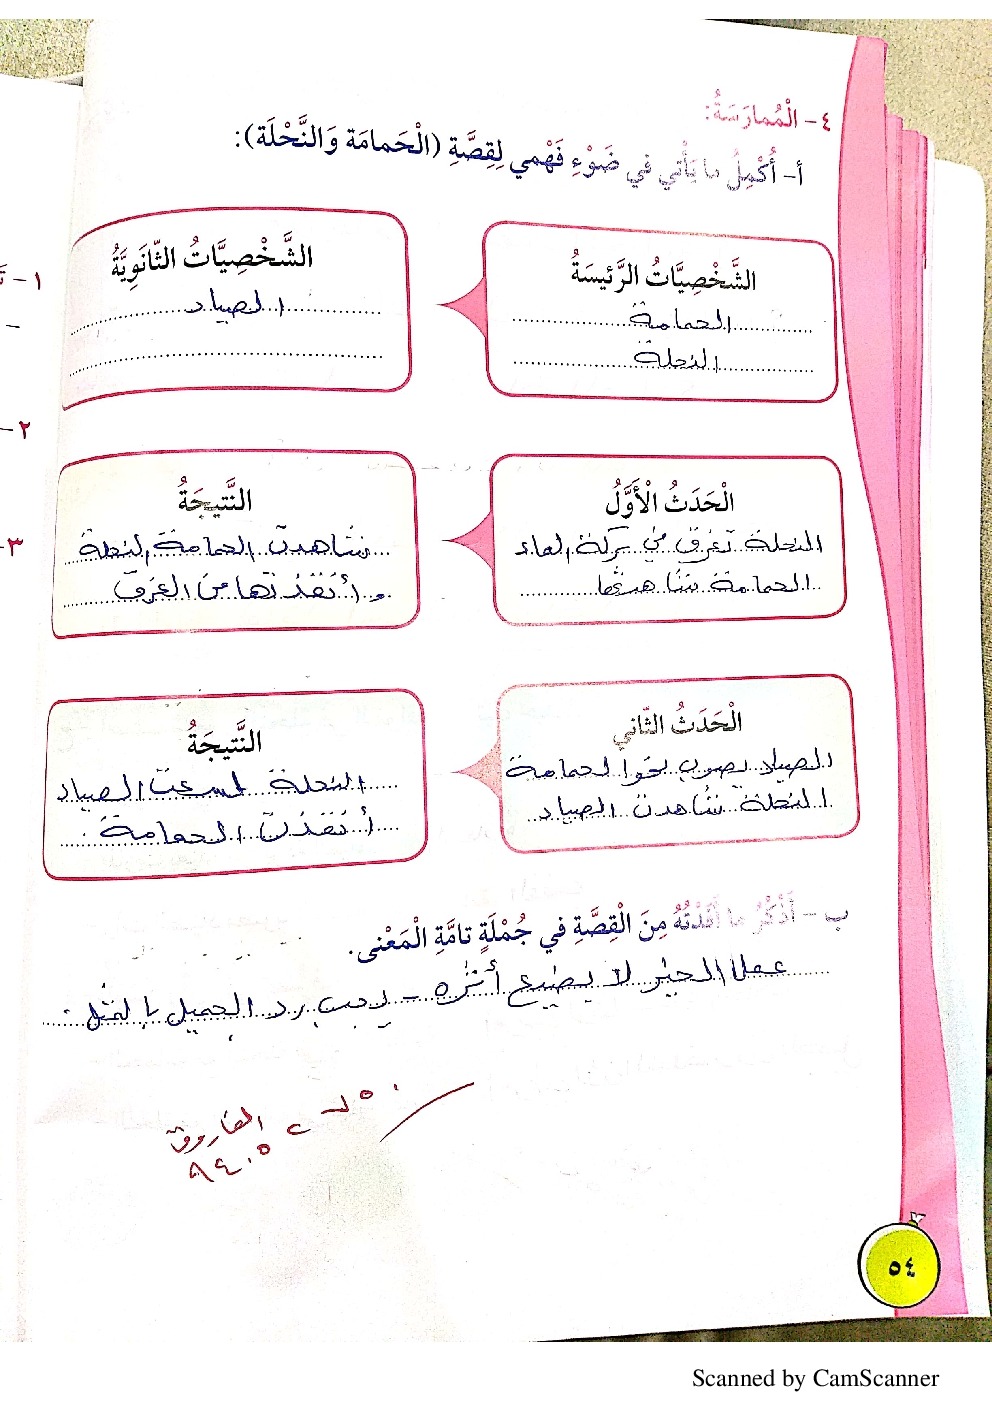 ٤- الْمُمارَسَةُ:
أ- أُكْمِلُ ما يَأْتي في ضَوْءِ فَهْمي لِقِصَّةِ (الْحَمامَة وَالنَّحْلَة):
الشَّخْصِيَّاتُ الرَّئيسَةُ
الحمامة
النحلة
الشَّخْصِيَّاتُ الثّانَوِيَّةُ
الصياد
الْحَدَثُ الْأَوَّلُ
النحلة تغرق في بركة الماء
الحمامة تشاهدها
النَّتيجَةُ
شاهدت الحمامة النحلة
و أنقذتها من الغرق
الْحَدَثُ الثّاني
الصياد يصوب نحو الحمامة
النحلة شاهدت الصياد
النَّتيجَةُ
النحلة لسعت الصياد
أنقذت الحمامة .
ب - أَذْكُرُ ما أَفَدْتُهُ مِنَ الْقِصَّةِ في جُمْلَةٍ تامَّةِ الْمَعْنى.
عمل الخير لا يضيع أثره - يجب رد الجميل بالمثل .
الفاروق
٥٤
١ - تَ
٢-
٣-
Scanned by CamScanner